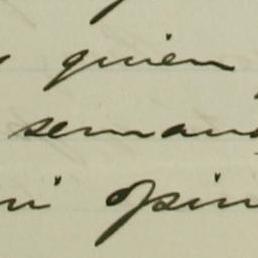 quien
semana
mi opin